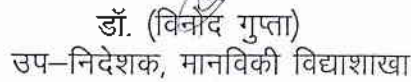 डॉ. (विनोद गुप्ता)
उप–निदेशक, मानविकी विद्याशाखा